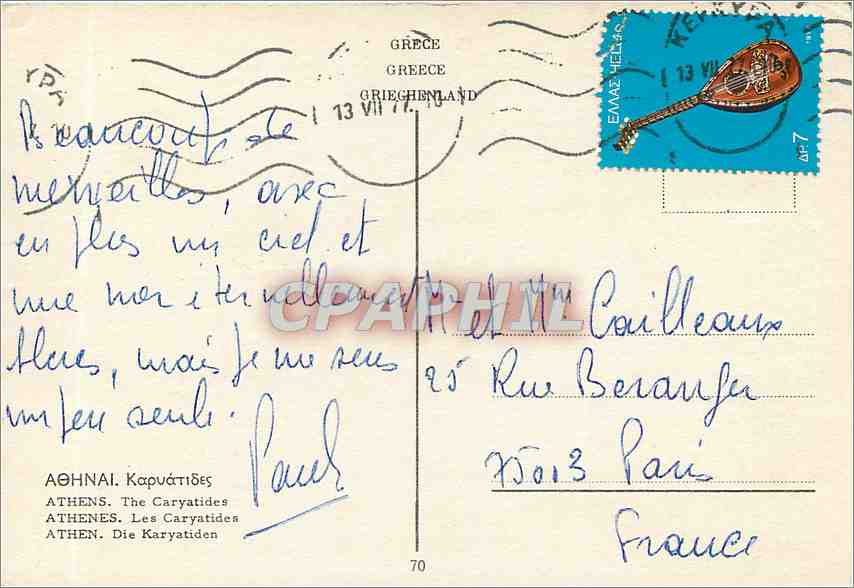 GRECE
GREECE
GRIECHENLAND
13 VII 77 10
ΚΕΡΚΥΡΑ
13 VII 77
ΕΛΛΑΣ-HELLAS
ΔΡ 7
Beaucoup de
merveilles, avec
en plus un ciel et
une mer éternellement
bleus, mais je me sens
un peu seule.
Paule
ΑΘΗΝΑΙ. Καρυάτιδες
ATHENS. The Caryatides
ATHENES. Les Caryatides
ATHEN. Die Karyatiden
CPAPHIL
Mr et Mme Cailleaux
25 Rue Beranger
75003 Paris
France
70